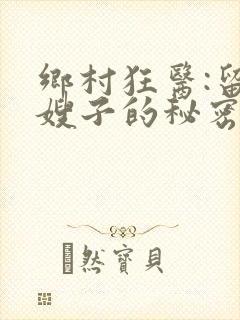 鄉村狂醫:留
嫂子的秘密
然寶貝